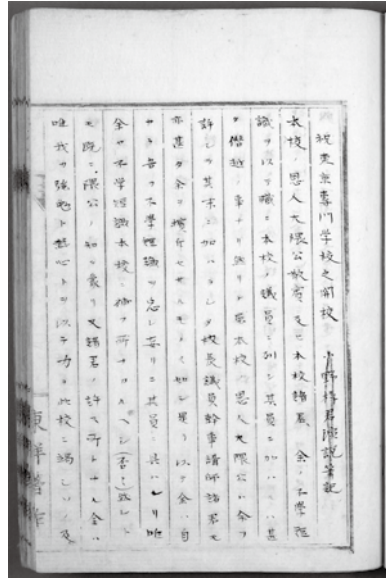 祝東京専門学校之開校 小野梓君演説筆記
本校ノ恩人大隈公敬賓及ヒ本校諸君、余ノ不学短
識ヲ以テ職ニ本校ノ議員ニ列シ其員ニ加ハル
ノ僭越ノ事ナリ 本校ノ恩人大隈公ハ余ヲ
許シテ其末ニ加ハラシメ校長議員幹事講師諸君モ
亦甚タ余ヲ擯斥セサルモノヽ如シ是ヲ以テ余ハ自
ラ ヲ不学短識ヲ忘レ妄リニ其員ニ具ハレリ唯
余ヤ不学短識本校ニ ナカルヘシ(否々)然レ
モ既ニ隈公ノ知ヲ蒙リ又諸君ノ許ス所トナル余ハ
唯我カ強勉ト熱心トヲ以テ力ヲ此校ニ竭シ 及
東洋